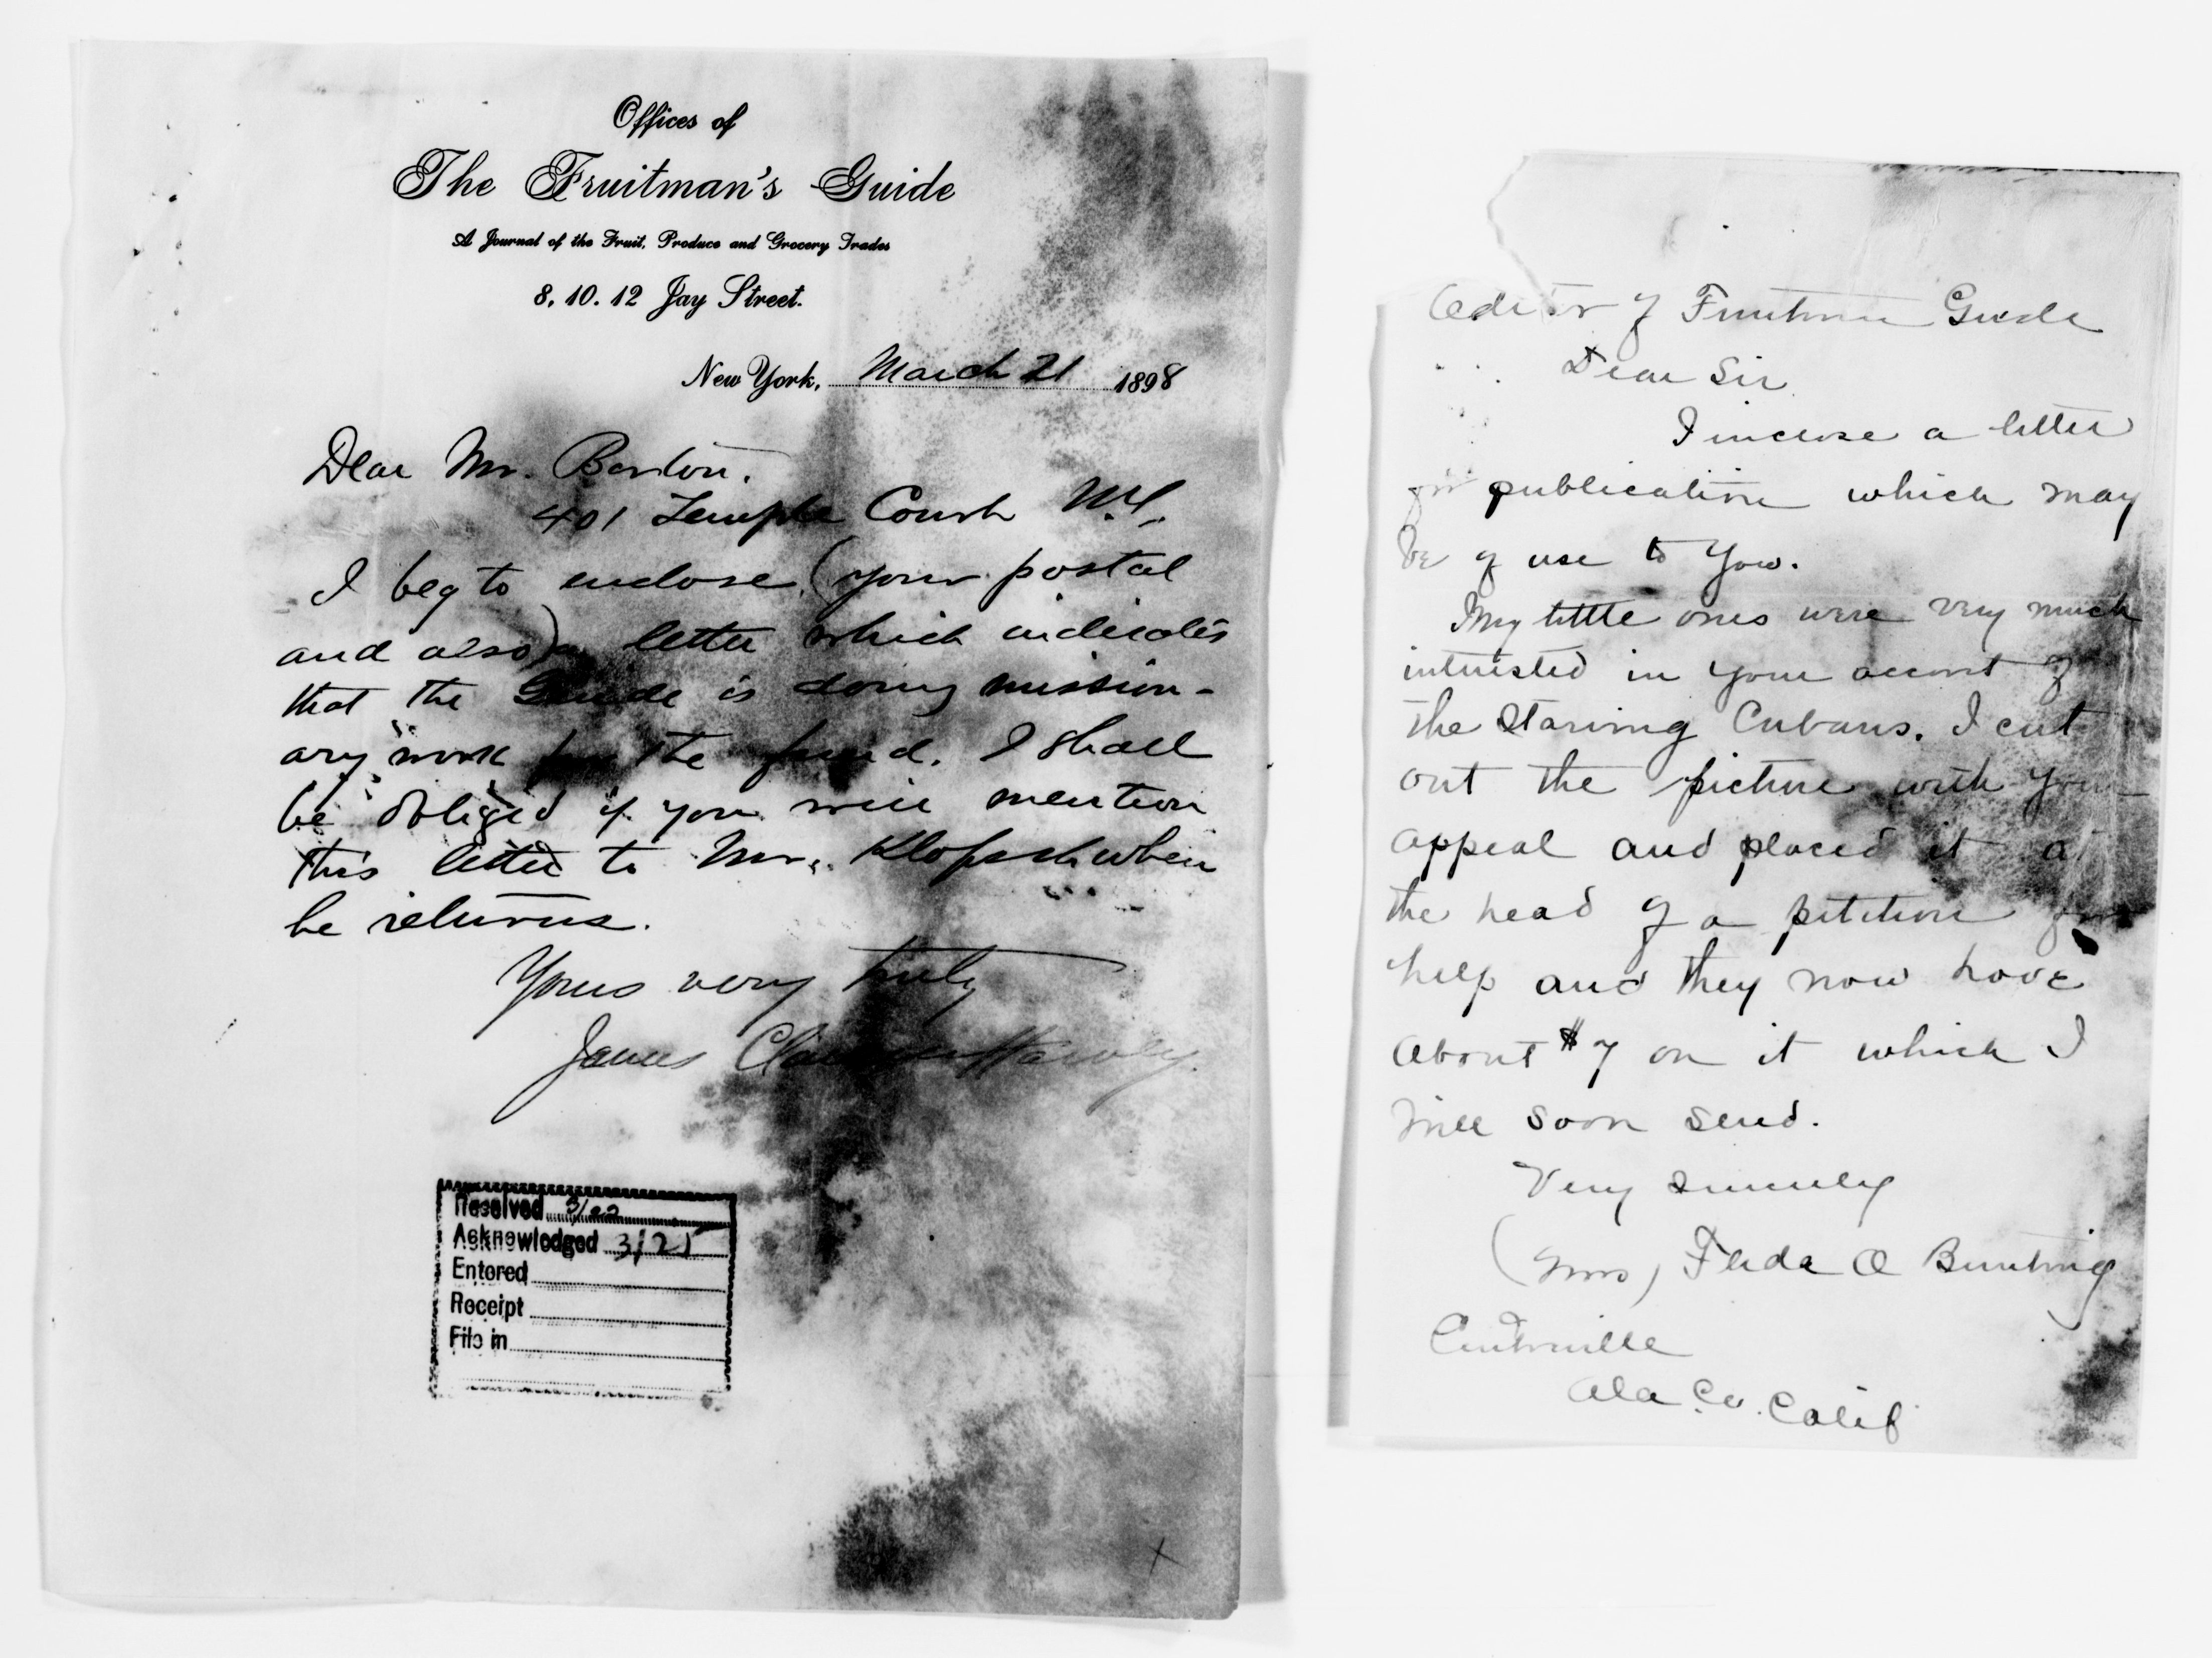 Offices of
The Fruitman's Guide
A Journal of the Fruit, Produce and Grocery Trades
8. 10. 12 Jay Street.
New York, March 21 1898
Dear Mr. Barton.
401 Temple Court N.Y.
I beg to enclose (your postal
and also) a letter which indicates
that the Guide is doing mission-
ary work for the fund. I shall
be obliged if you will mention
this letter to Mr. Klopsch when
he returns.
Yours very truly
James
Received 3/22
Acknowledged 3/25
Entered
Receipt
File in
Editor of Fruitman Guide
Dear Sir
I inclose a letter
for publication which may
be of use to You.
My little ones were very much
interested in your account of
the Starving Cubans. I cut
out the picture with your
appeal and placed it at
the head of a petition for
help and they now have
about $7 on it which I
will soon send.
Very sincerely
(Mrs) Fleda O Bunting
Centreville
Ala. Co. Calif